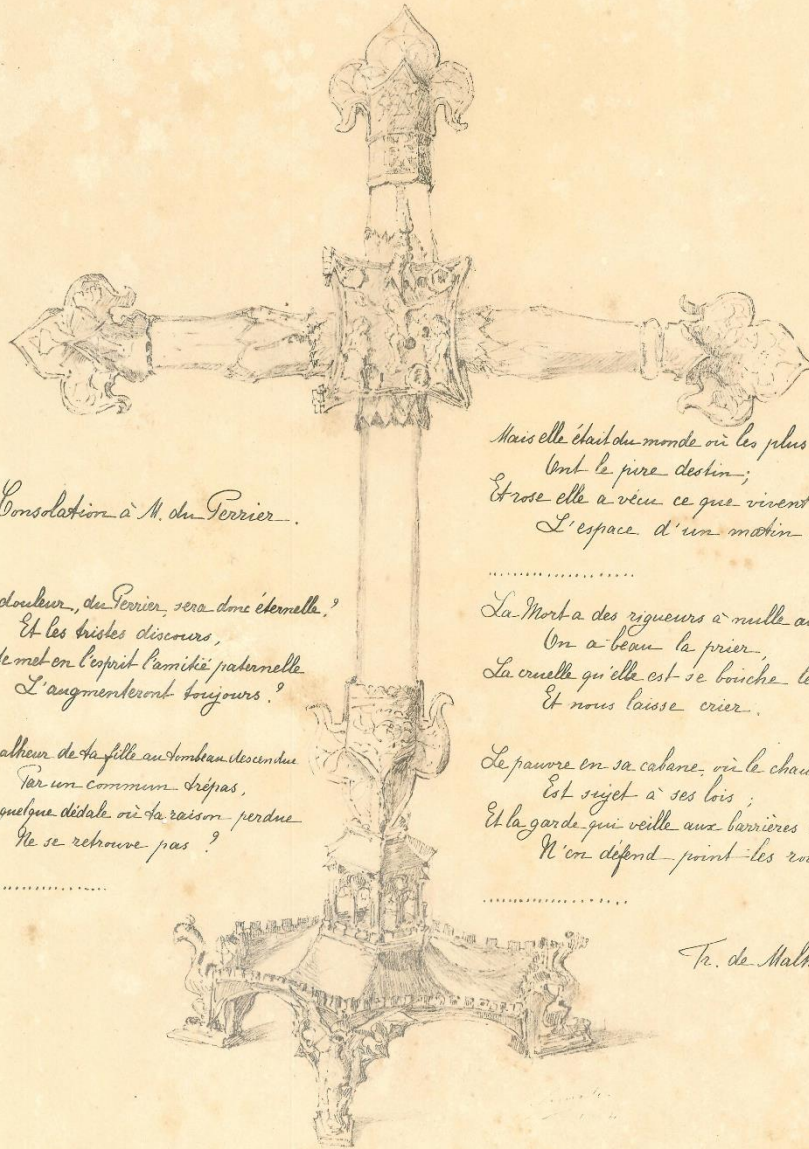 Consolation à M. du Perrier.
douleur, du Perrier, sera donc éternelle ?
Et les tristes discours,
te met en l'esprit l'amitié paternelle
L'augmenteront toujours ?
alheur de ta fille au tombeau descendue
Par un commun trépas,
quelque dédale où ta raison perdue
Ne se retrouve pas ?
...............
Mais elle était du monde où les plus
Ont le pire destin ;
Et rose elle a vécu ce que vivent
L'espace d'un matin
...............
La Mort a des rigueurs à nulle au
On a beau la prier,
La cruelle qu'elle est se bouche le
Et nous laisse crier.
Le pauvre en sa cabane, où le chau
Est sujet à ses lois ;
Et la garde qui veille aux barrières
N'en défend point les ro
...............
Fr. de Malh